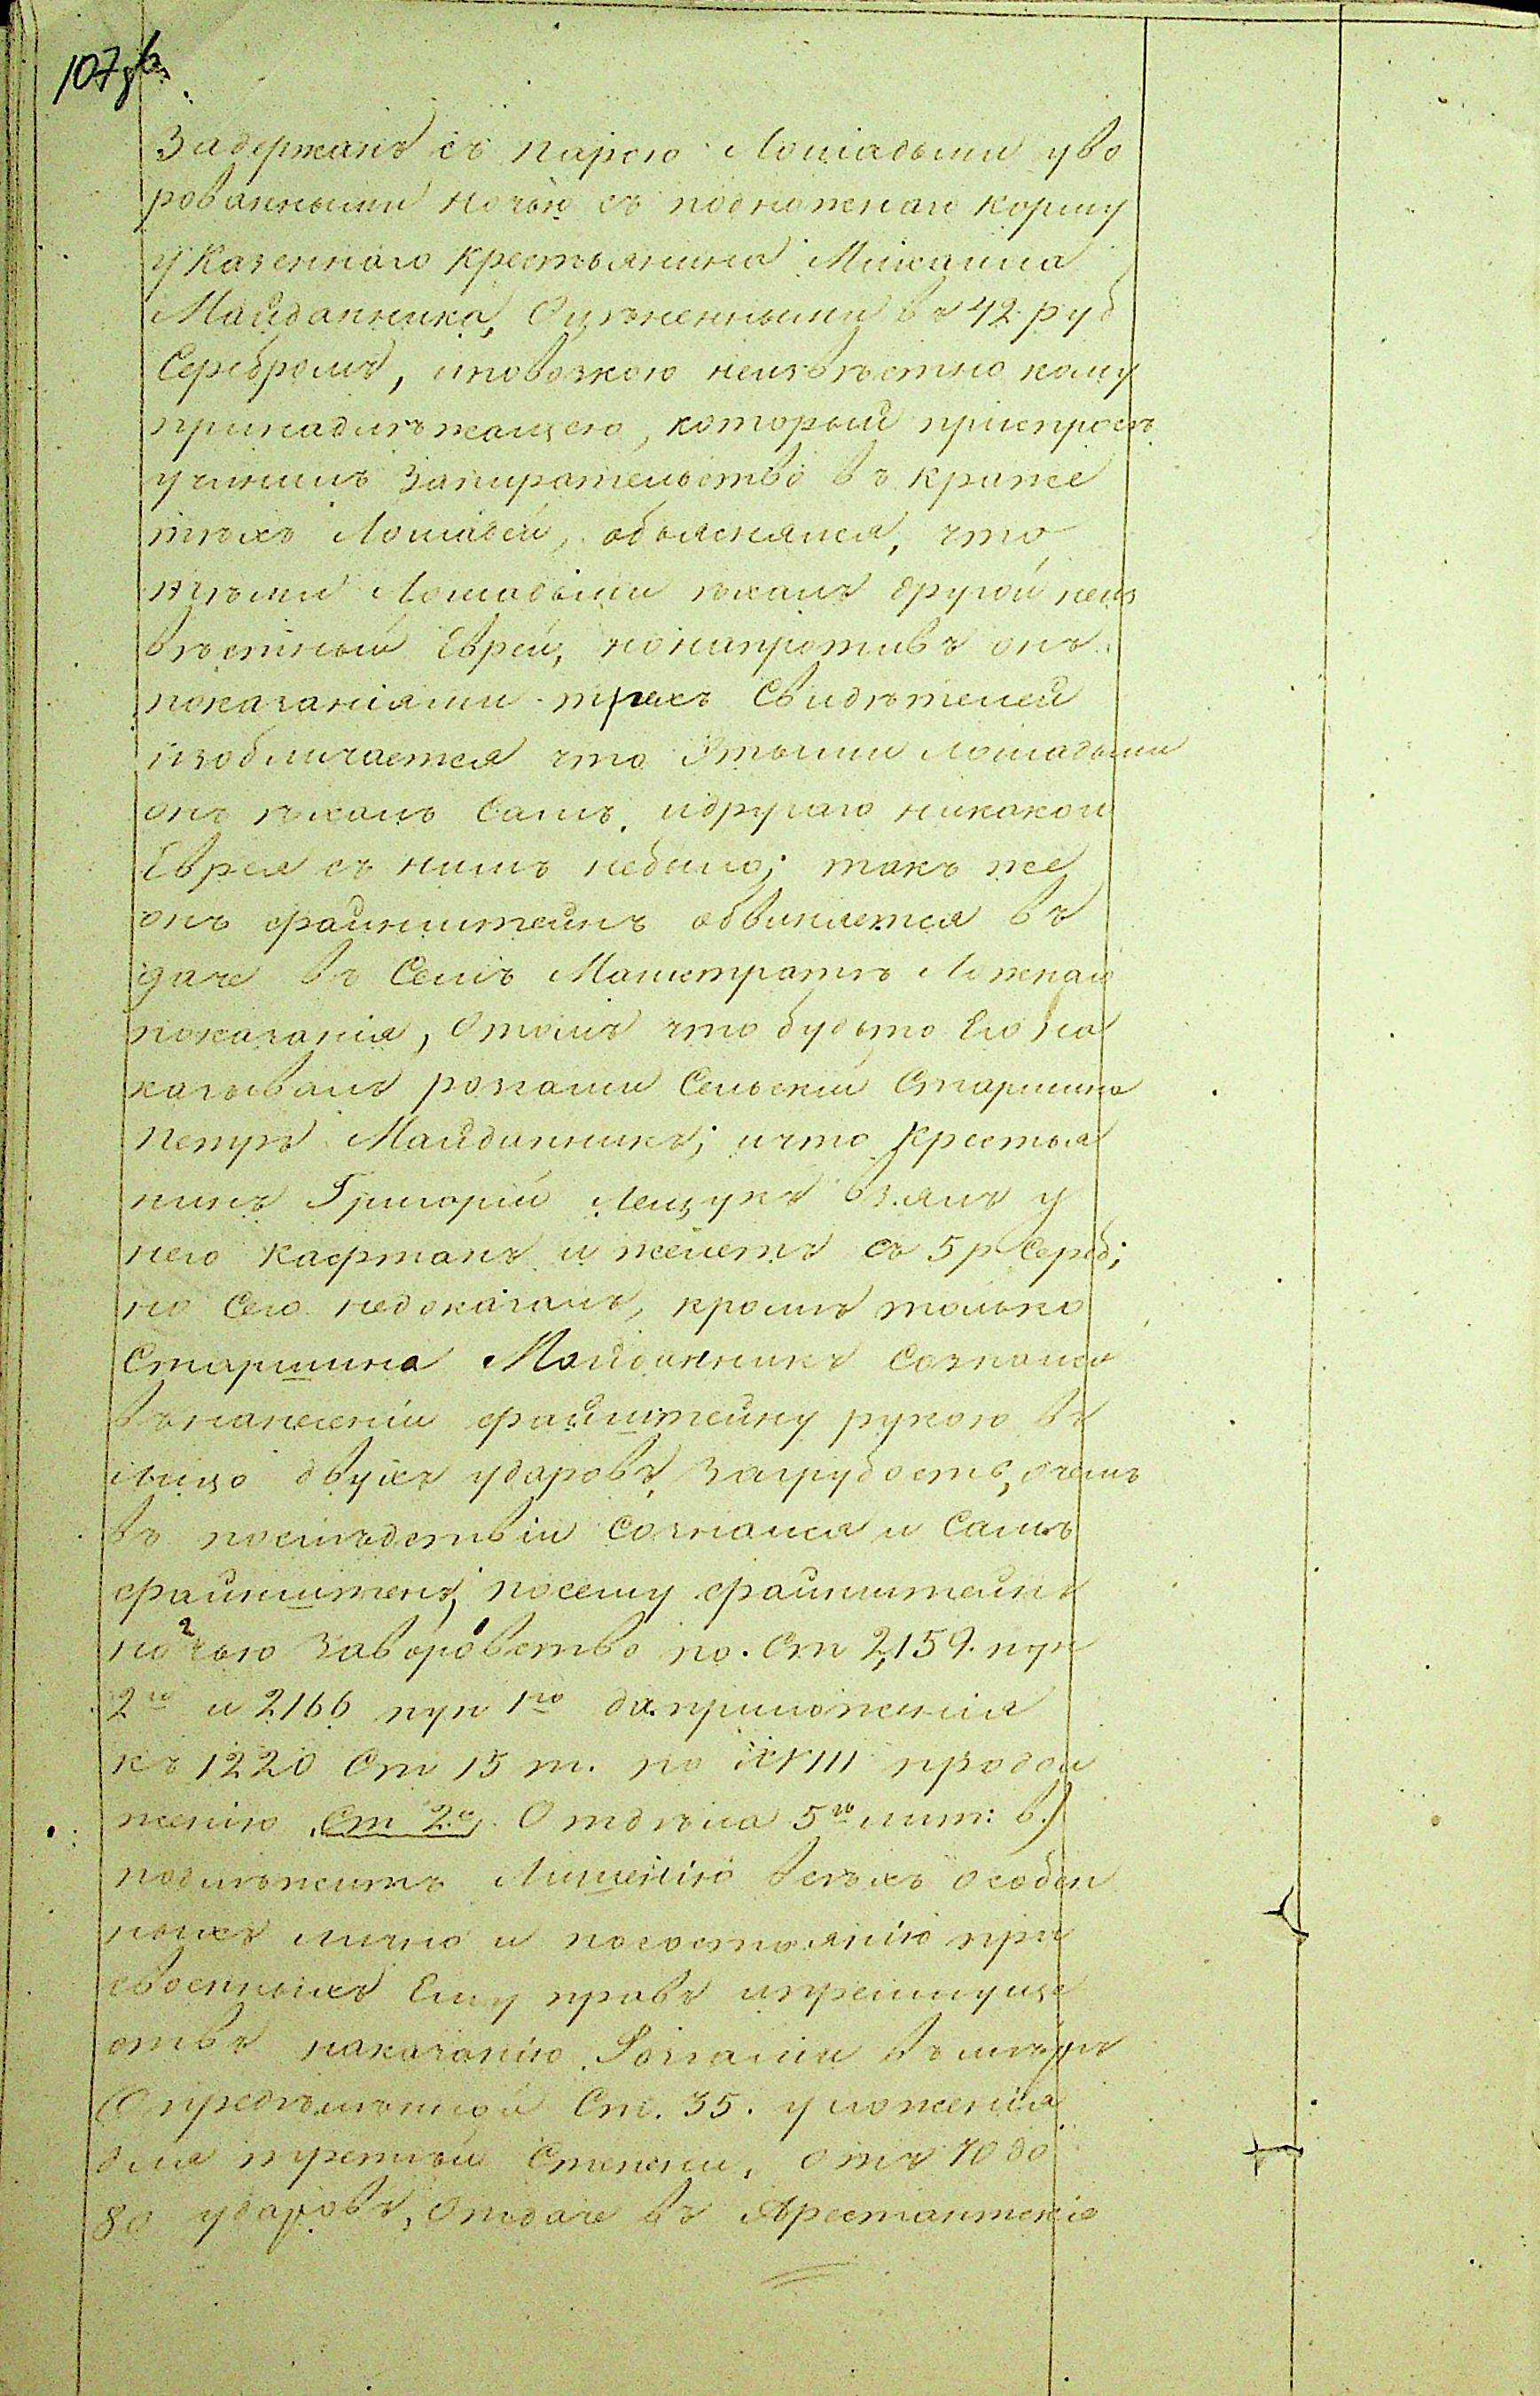 107 об
Задержанъ съ парою Лошадьми уво
рованными ночью съ подножнаго корму
у Казеннаго Крестьянина Михаила
Майданника, Оцѣненными въ 42 руб
Серебромъ, иповозкою неизвѣстно кому
принадлѣжащею, который приспросѣ
учинилъ Запирательство въ краже
тѣхъ Лошадей, объясняяся, что
Лошадьми ѣхалъ другой неиз
вѣстный Еврей, нонапротивъ онъ
показаніями трехъ Свидѣтелей
изобличается что Этыми лошадьми
онъ ѣхалъ Самъ, идругаго никакого
Еврея съ нимъ небыло; такъ же
онъ файнштейнъ обвиняется въ
даче въ Семъ Магистратѣ Ложнаго
показанія, Отомъ что будьто Его на
казывалъ розгами Сельскій Старшина
Петръ Майданникъ; ичто Крестья
нинъ Григорій Лещукъ взялъ у
него кафтанъ и жилетъ съ 5 р Сереб;
но Сего недоказалъ, кромѣ только
Старшина Майданникъ Сознался
въ нанесеніи файнштейну рукою въ
лицо двухъ ударовъ, Загрубость, очемъ
въ послѣдствіи Сознался и Самъ
файнштенъ, посему файнштейнъ
ночью Заворовство по. Ст 2,159. пун
2го и 2166 пун 1го приложенія
къ 1220 Ст 15 т. по XVIII продол
женію Ст 2я Отдѣла 5го лит: в.)
подлѣжитъ Лишенію всѣхъ особен
ныхъ лично и посостоянію при
своенныхъ Ему правъ ипреимуще
ствъ наказанію Розгами въ мѣрѣ
Опредѣлѣнной Ст. 35. уложенія
для третьей Степени, отъ 70 до
80 ударовъ, Отдаче въ Арестантскіе